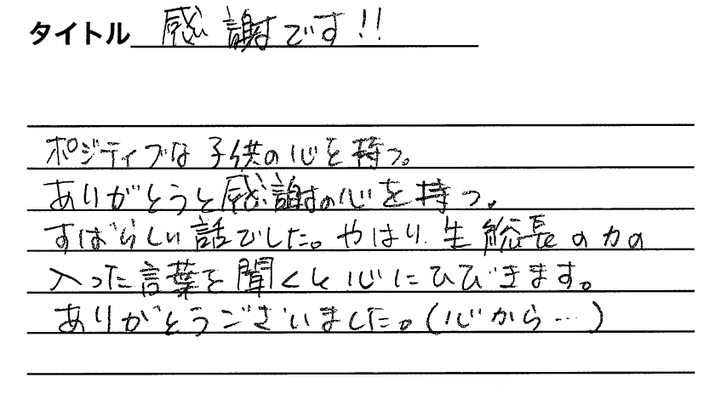 タイトル 感謝です!!
ポジティブな子供の心を持つ。
ありがとうと感謝の心を持つ。
すばらしい話でした。やはり、生総長の力の
入った言葉を聞くと心にひびきます。
ありがとうございました。(心から…)